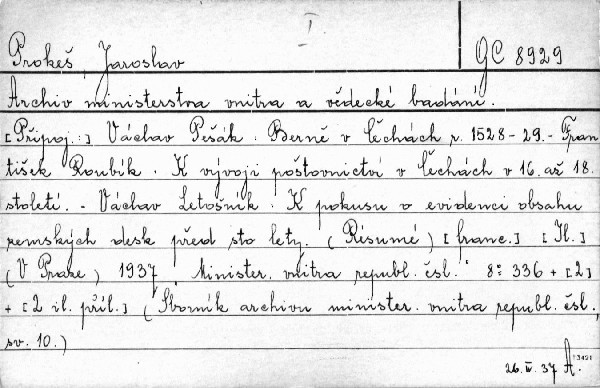 I
Prokeš, Jaroslav
GC 8929
Archiv ministerstva vnitra a vědecké badání.
[Připoj.:] Václav Pešák. Berně v Čechách r. 1528-29.- Fran
tišek Roubík. K vývoji poštovnictví v Čechách v 16. až 18.
století. - Václav Letošník. K pokusu o evidenci obsahu
zemských desk před sto lety. (Résumé) [franc.] [Il.]
(V Praze) 1937. Minister. vnitra republ. čsl. 8° 336 + [2]
+ [2 il. příl.] (Sborník archivu minister. vnitra republ. čsl.,
sv. 10.)
73491
26. IV. 37 A.